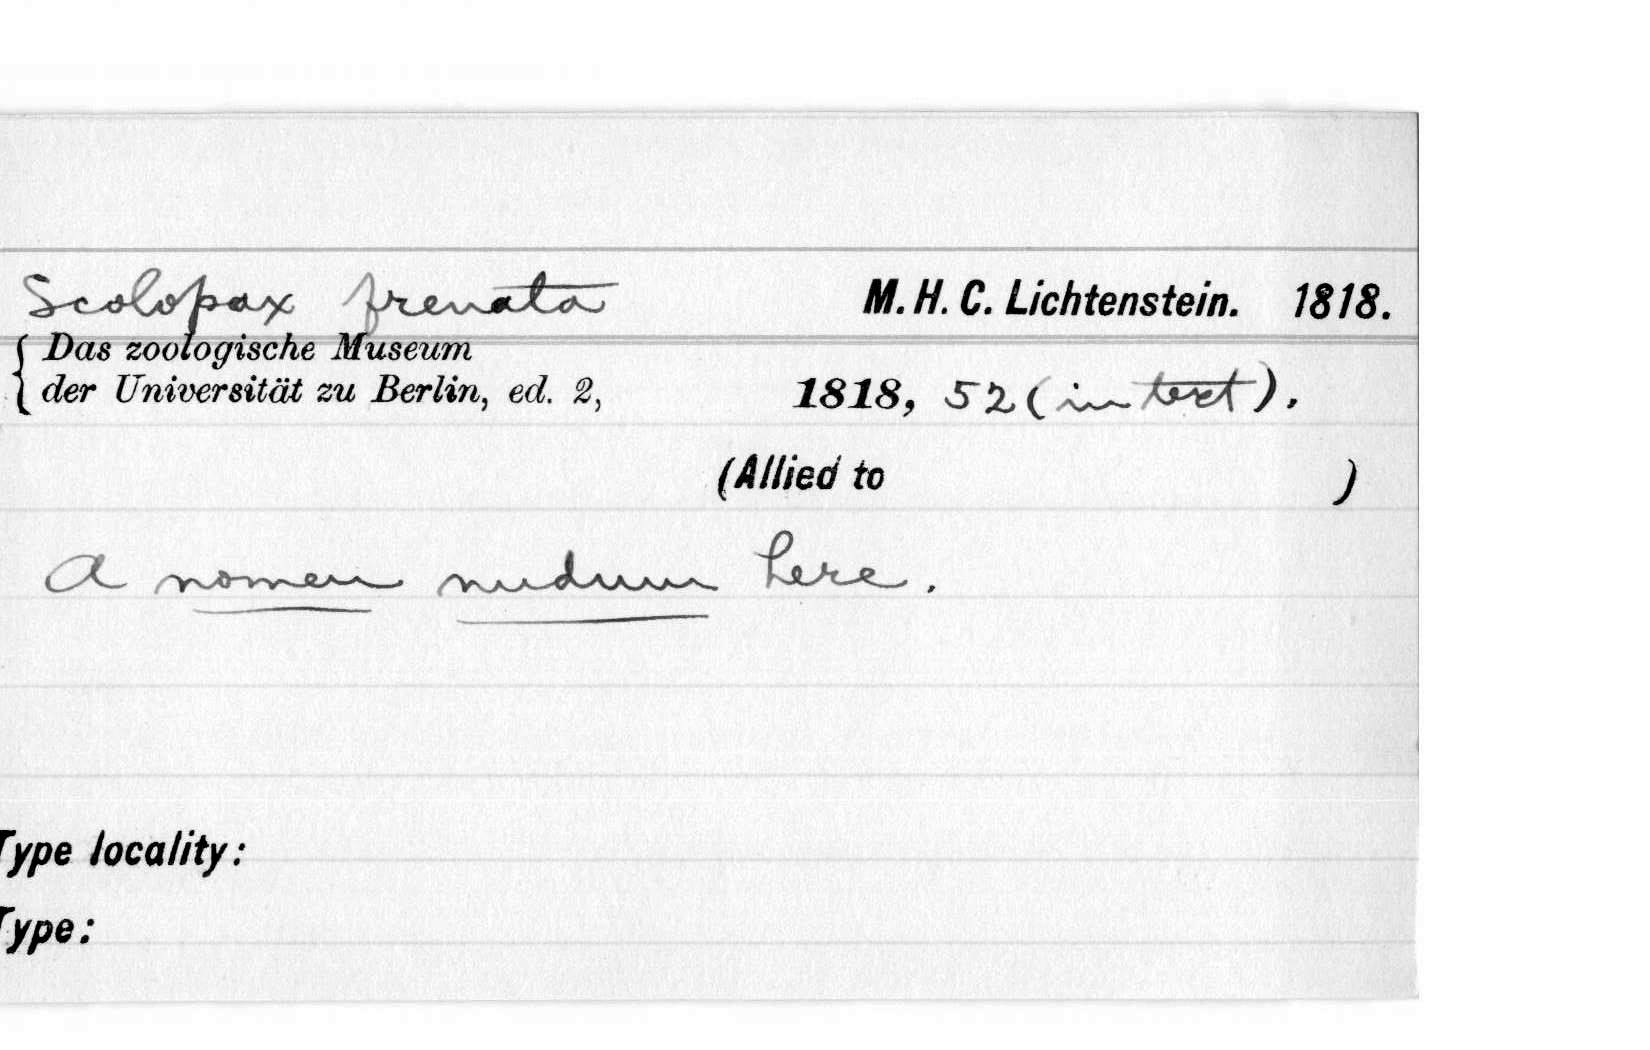 Scolopax frenata M. H. C. Lichtenstein. 1818.
{ Das zoologische Museum
der Universität zu Berlin, ed. 2, 1818, 52 (in text).
(Allied to )
A nomen nudum here.
Type locality:
Type: